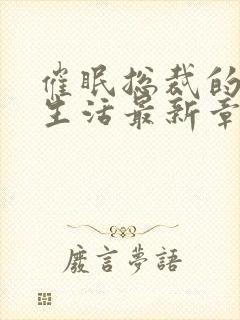 催眠总裁的
生活最新章
廢言夢語